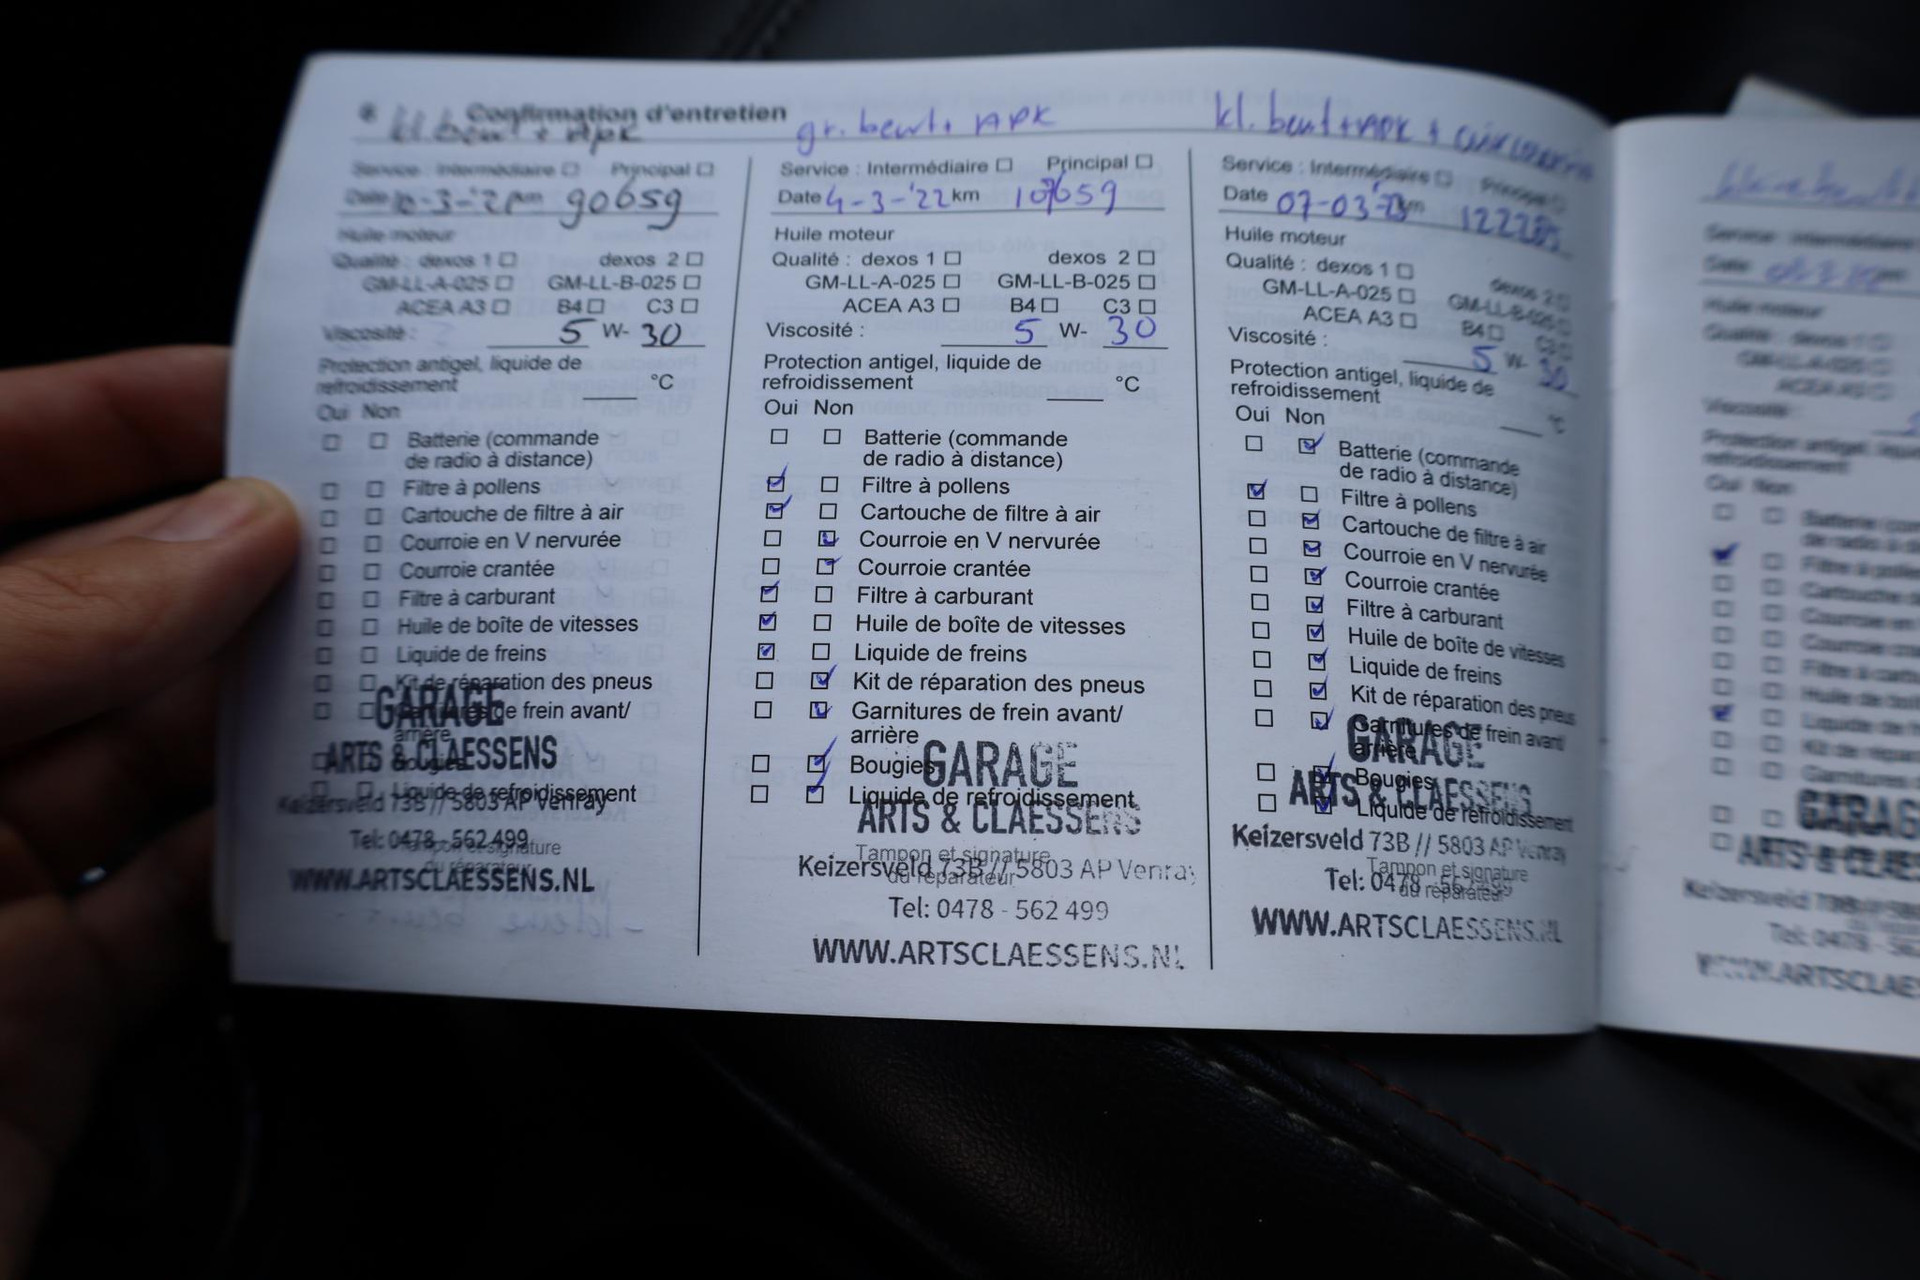 Confirmation d'entretien
kl. beurt + APK
Service : Intermédiaire Principal
Date km 90659
Huile moteur
Qualité : dexos 1 dexos 2
GM-LL-A-025 GM-LL-B-025
ACEA A3 B4 C3
Viscosité : 5 W- 30
Protection antigel, liquide de
refroidissement °C
Oui Non
Batterie (commande
de radio à distance)
Filtre à pollens
Cartouche de filtre à air
Courroie en V nervurée
Courroie crantée
Filtre à carburant
Huile de boîte de vitesses
Liquide de freins
Kit de réparation des pneus
Garnitures de frein avant/
arrière
Bougies
Liquide de refroidissement
Tampon et signature
du réparateur
GARAGE
ARTS & CLAESSENS
Keizersveld 73B // 5803 AP Venray
Tel: 0478 - 562 499
WWW.ARTSCLAESSENS.NL
gr. beurt + APK
Service : Intermédiaire Principal
Date 4-3-'22 km 107659
Huile moteur
Qualité : dexos 1 dexos 2
GM-LL-A-025 GM-LL-B-025
ACEA A3 B4 C3
Viscosité : 5 W- 30
Protection antigel, liquide de
refroidissement °C
Oui Non
Batterie (commande
de radio à distance)
Filtre à pollens
Cartouche de filtre à air
Courroie en V nervurée
Courroie crantée
Filtre à carburant
Huile de boîte de vitesses
Liquide de freins
Kit de réparation des pneus
Garnitures de frein avant/
arrière
Bougies
Liquide de refroidissement
Tampon et signature
du réparateur
GARAGE
ARTS & CLAESSENS
Keizersveld 73B // 5803 AP Venray
Tel: 0478 - 562 499
WWW.ARTSCLAESSENS.NL
kl. beurt + APK +
Service : Intermédiaire Principal
Date 07-03-'23 km
Huile moteur
Qualité : dexos 1 dexos 2
GM-LL-A-025 GM-LL-B-025
ACEA A3 B4 C3
Viscosité : 5 W- 30
Protection antigel, liquide de
refroidissement °C
Oui Non
Batterie (commande
de radio à distance)
Filtre à pollens
Cartouche de filtre à air
Courroie en V nervurée
Courroie crantée
Filtre à carburant
Huile de boîte de vitesses
Liquide de freins
Kit de réparation des pneus
Garnitures de frein avant/
arrière
Bougies
Liquide de refroidissement
Tampon et signature
du réparateur
GARAGE
ARTS & CLAESSENS
Keizersveld 73B // 5803 AP Venray
Tel: 0478 - 562 499
WWW.ARTSCLAESSENS.NL